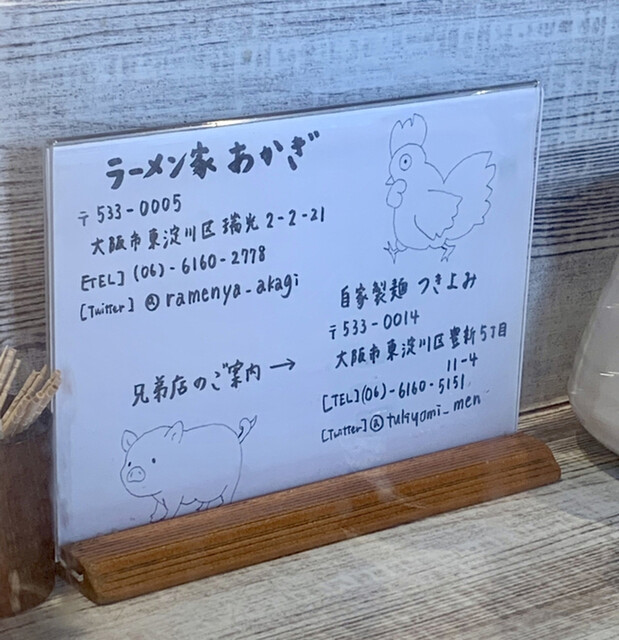 ラーメン家 あかぎ
〒533-0005
大阪市東淀川区瑞光2-2-21
[TEL] (06)-6160-2778
[Twitter] @ramenya_akagi
兄弟店のご案内 →
自家製麺 つきよみ
〒533-0014
大阪市東淀川区豊新5丁目
11-4
[TEL] (06)-6160-5151
[Twitter] @tukiyomi_men